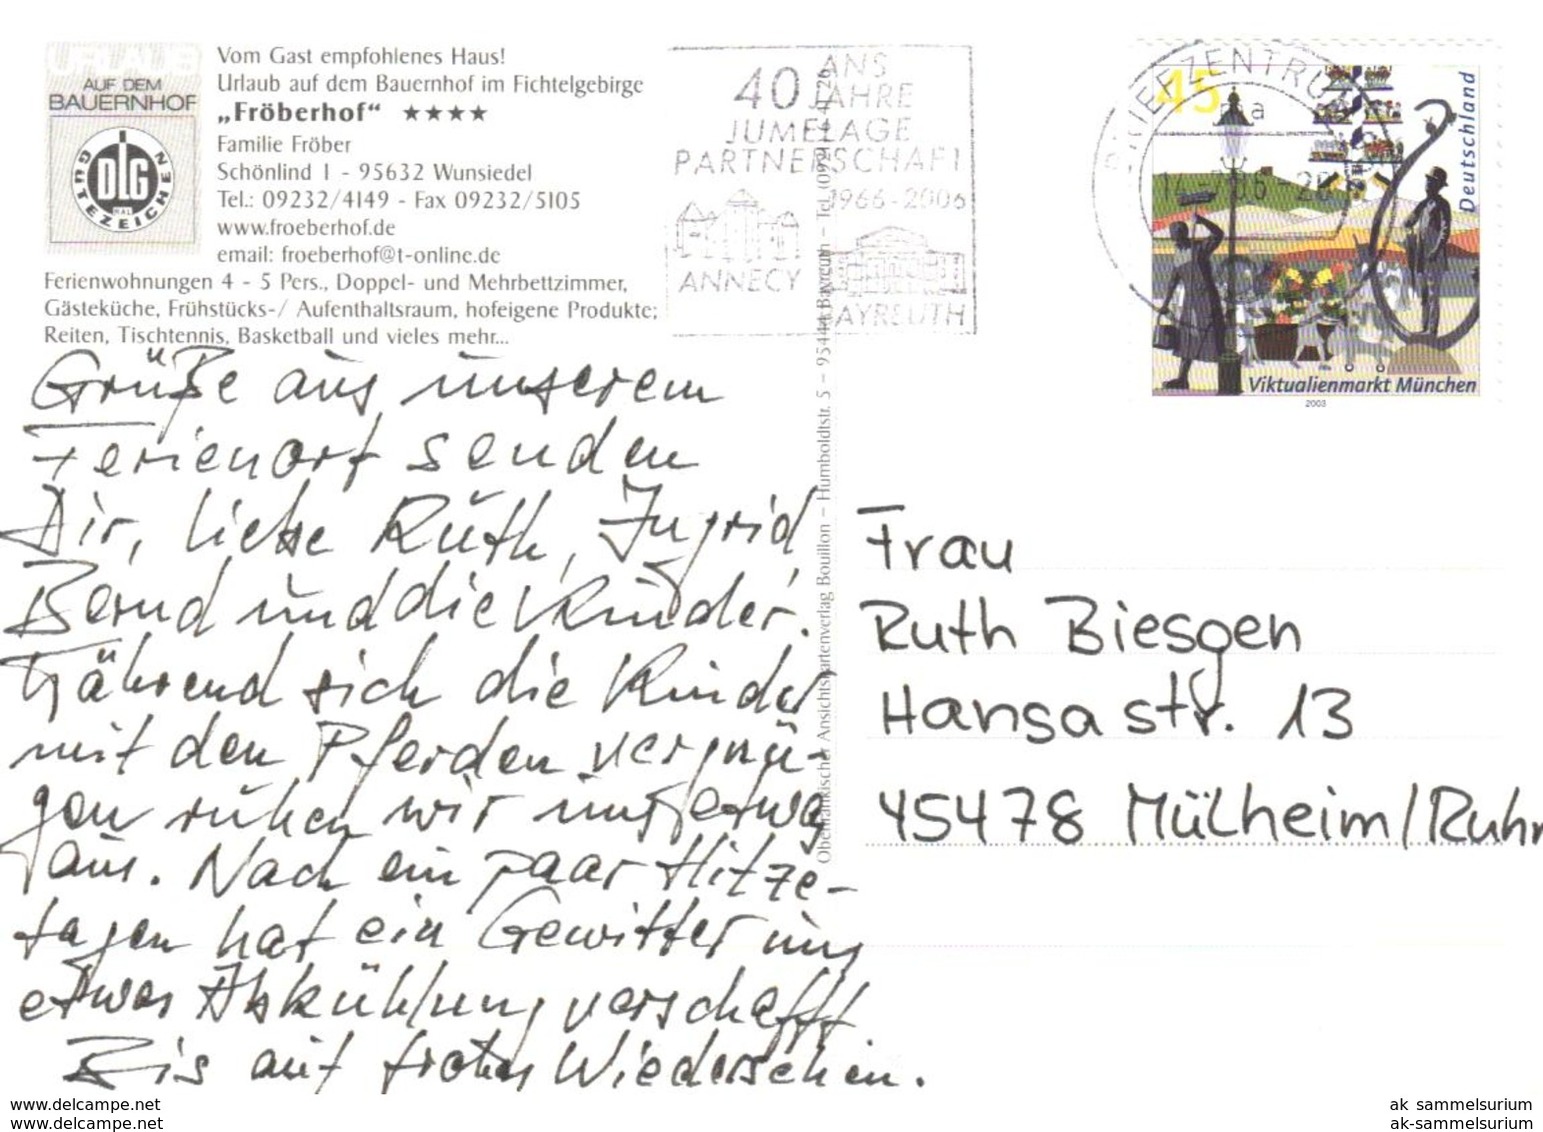 URLAUB
AUF DEM
BAUERNHOF
DLG
GÜTEZEICHEN
Vom Gast empfohlenes Haus!
Urlaub auf dem Bauernhof im Fichtelgebirge
„Fröberhof“ ★★★★
Familie Fröber
Schönlind 1 - 95632 Wunsiedel
Tel.: 09232/4149 - Fax 09232/5105
www.froeberhof.de
email: froeberhof@t-online.de
Ferienwohnungen 4 - 5 Pers., Doppel- und Mehrbettzimmer,
Gästeküche, Frühstücks-/ Aufenthaltsraum, hofeigene Produkte;
Reiten, Tischtennis, Basketball und vieles mehr...
40 ANS
JAHRE
JUMELAGE
PARTNERSCHAFT
1966-2006
ANNECY
BAYREUTH
BRIEFZENTRUM
45
Deutschland
Viktualienmarkt München
2003
Grüße aus unserem
Ferienort senden
Dir, liebe Ruth, Ingrid,
Bernd und die Kinder.
Während sich die Kinder
mit den Pferden vergnü-
gen ruhen wir uns etwas
aus. Nach ein paar Hitze-
tagen hat ein Gewitter uns
etwas Abkühlung verschafft
Bis auf frohes Wiedersehen.
Oberfränkischer Ansichtskartenverlag Bouillon – Humboldtstr. 5 – 95444 Bayreuth – Tel.
Frau
Ruth Biesgen
Hansastr. 13
45478 Mülheim/Ruhr
www.delcampe.net
www.delcampe.net
ak_sammelsurium
ak-sammelsurium